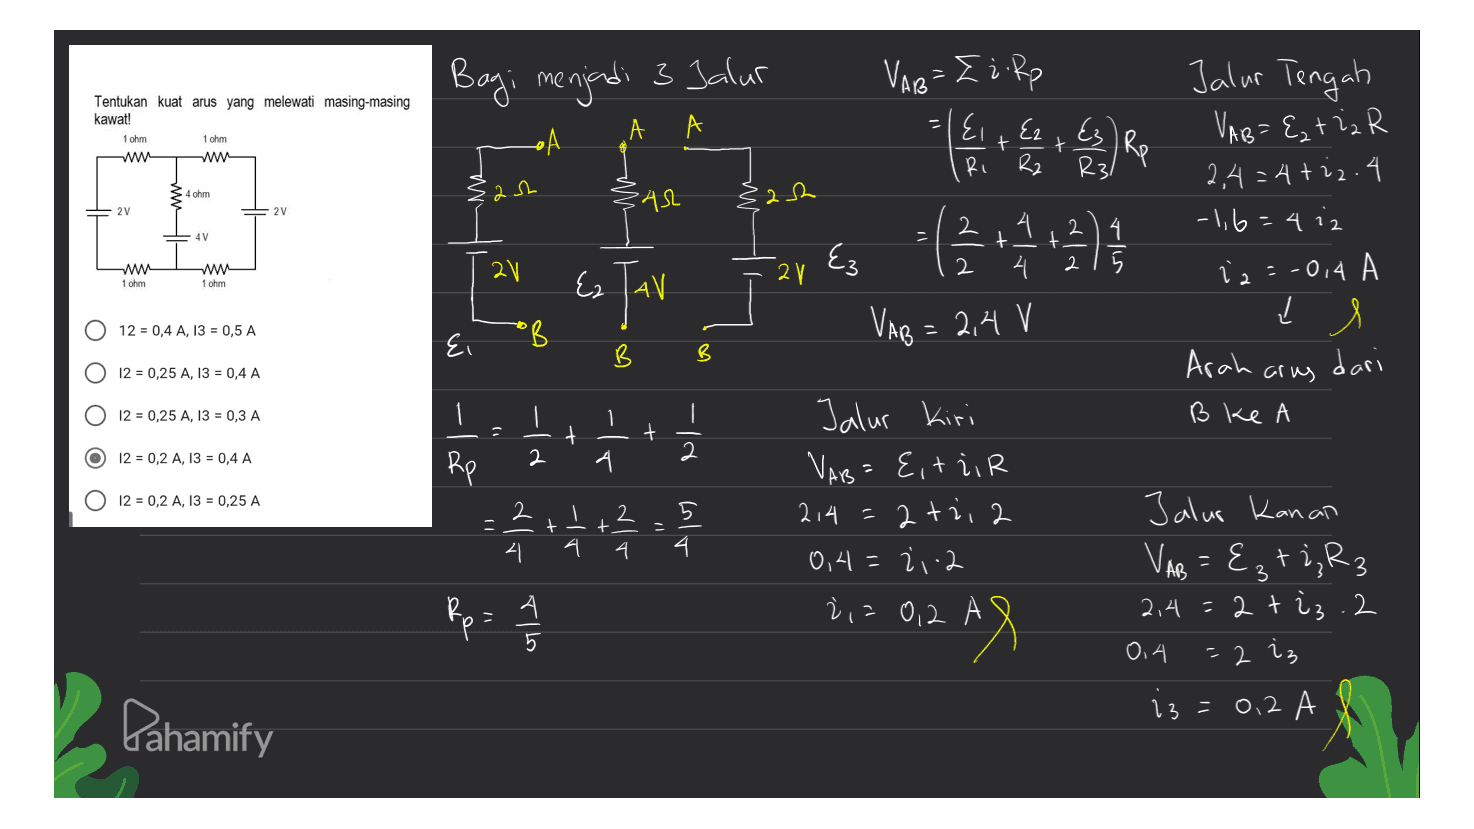 Tentukan kuat arus yang melewati masing-masing
kawat!
1 ohm
1 ohm
4 ohm
2 V
2 V
4 V
1 ohm
1 ohm
12 = 0,4 A, I3 = 0,5 A
I2 = 0,25 A, I3 = 0,4 A
I2 = 0,25 A, I3 = 0,3 A
I2 = 0,2 A, I3 = 0,4 A
I2 = 0,2 A, I3 = 0,25 A
Bagi menjadi 3 Jalur
A
A
A
2Ω
4Ω
2Ω
2V
ε2
4V
2V
ε3
ε1
B
B
B
1/Rp = 1/2 + 1/4 + 1/2
= 2/4 + 1/4 + 2/4 = 5/4
Rp = 4/5
VAB = Σ i·Rp
= (ε1/R1 + ε2/R2 + ε3/R3) Rp
= (2/2 + 4/4 + 2/2) 4/5
VAB = 2,4 V
Jalur Kiri
VAB = ε1 + i1R
2,4 = 2 + i1 2
0,4 = i1·2
i1 = 0,2 A
Jalur Tengah
VAB = ε2 + i2R
2,4 = 4 + i2 . 4
-1,6 = 4 i2
i2 = -0,4 A
↓
Arah arus dari
B ke A
Jalur Kanan
VAB = ε3 + i3R3
2,4 = 2 + i3 . 2
0,4 = 2 i3
i3 = 0,2 A
Pahamify